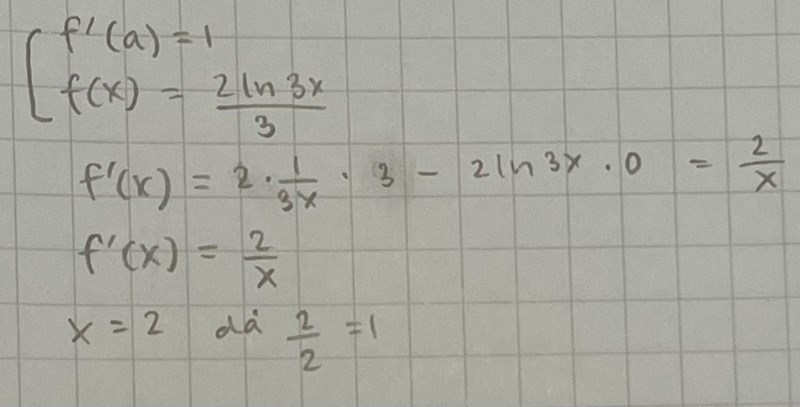 f'(a) = 1
f(x) = 2 ln 3x / 3
f'(x) = 2 · 1/3x · 3 - 2 ln 3x · 0 = 2/x
f'(x) = 2/x
x = 2 då 2/2 = 1